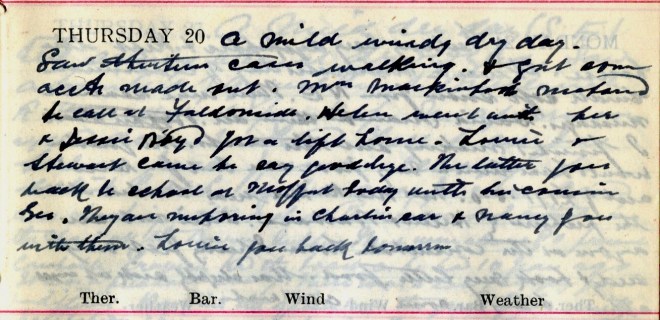 THURSDAY 20 A mild windy dry day.
Saw thirteen cases walking. & got some
accts made out. Mrs Mackintosh motored
to call at Faldonside. Helen went with her
& Jessie Boyd for a lift home. Louie &
Stewart came to say goodbye. The latter goes
back to school at Moffat today with his cousin
Geo. They are motoring in Charlie's car & Nancy goes
with them. Louie goes back tomorrow
Ther. Bar. Wind Weather